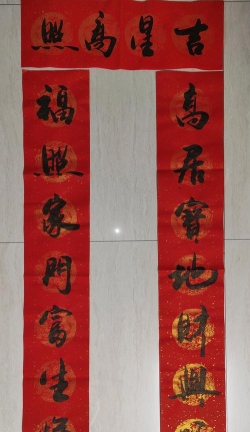 吉星高照
高居寶地財興
福照家門富生